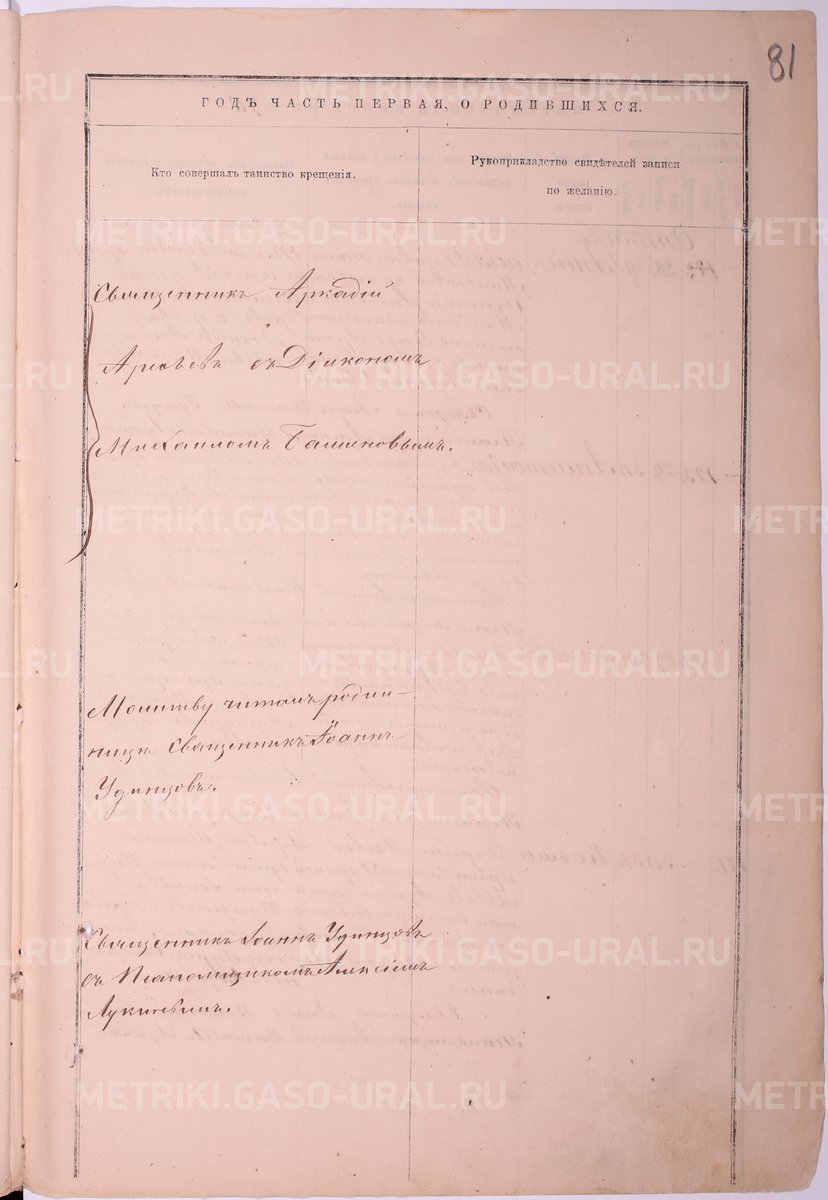 81
ГОДЪ ЧАСТЬ ПЕРВАЯ, О РОДИВШИХСЯ.
Кто совершалъ таинство крещенія.
Рукоприкладство свидѣтелей записи
по желанію.
Священникъ Аркадій
съ Діакономъ
Михаиломъ
Молитву читалъ родиль-
ницѣ Священникъ Іоаннъ
Удинцовъ.
Священникъ Іоаннъ Удинцовъ
съ Псаломщикомъ Алексѣемъ
Лукинымъ.
METRIKI.GASO-URAL.RU